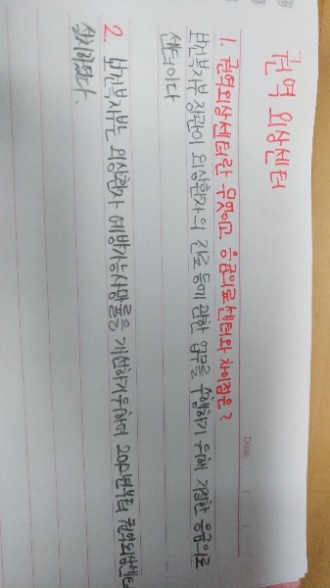 권역 외상센터
Date. / /
1. 권역외상센터란 무엇이고 응급의료센터와 차이점은?
보건복지부 장관이 외상환자의 진료 등에 관한 업무를 수행하기 위해 지정한 응급의료
센터이다
2. 보건복지부는 외상환자 예방가능사망률을 개선하기위하여 2012년부터 권역외상센터
설치하였다.